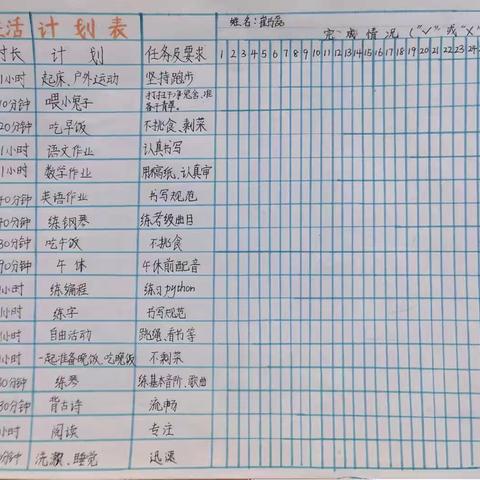 活 计 划 表
姓名：
完 成 情 况（"✓"或"×"
时长 计 划 任务及要求 1 2 3 4 5 6 7 8 9 10 11 12 13 14 15 16 17 18 19 20 21 22 23 24
1小时 起床、户外运动 坚持跑步
10分钟 喂小兔子 打扫干净兔舍、准
备干青草。
20分钟 吃早饭 不挑食、剩菜
1小时 语文作业 认真书写
1小时 数学作业 用稿纸、认真审
40分钟 英语作业 书写规范
40分钟 练钢琴 练考级曲目
30分钟 吃午饭 不挑食
90分钟 午休 午休前配音
小时 练编程 练习python
小时 练字 书写规范
小时 自由活动 跳绳、看书等
小时 一起准备晚饭、吃晚饭 不剩菜
30分钟 练琴 练基本音阶、歌曲
30分钟 背古诗 流畅
小时 阅读 专注
分钟 洗漱、睡觉 迅速